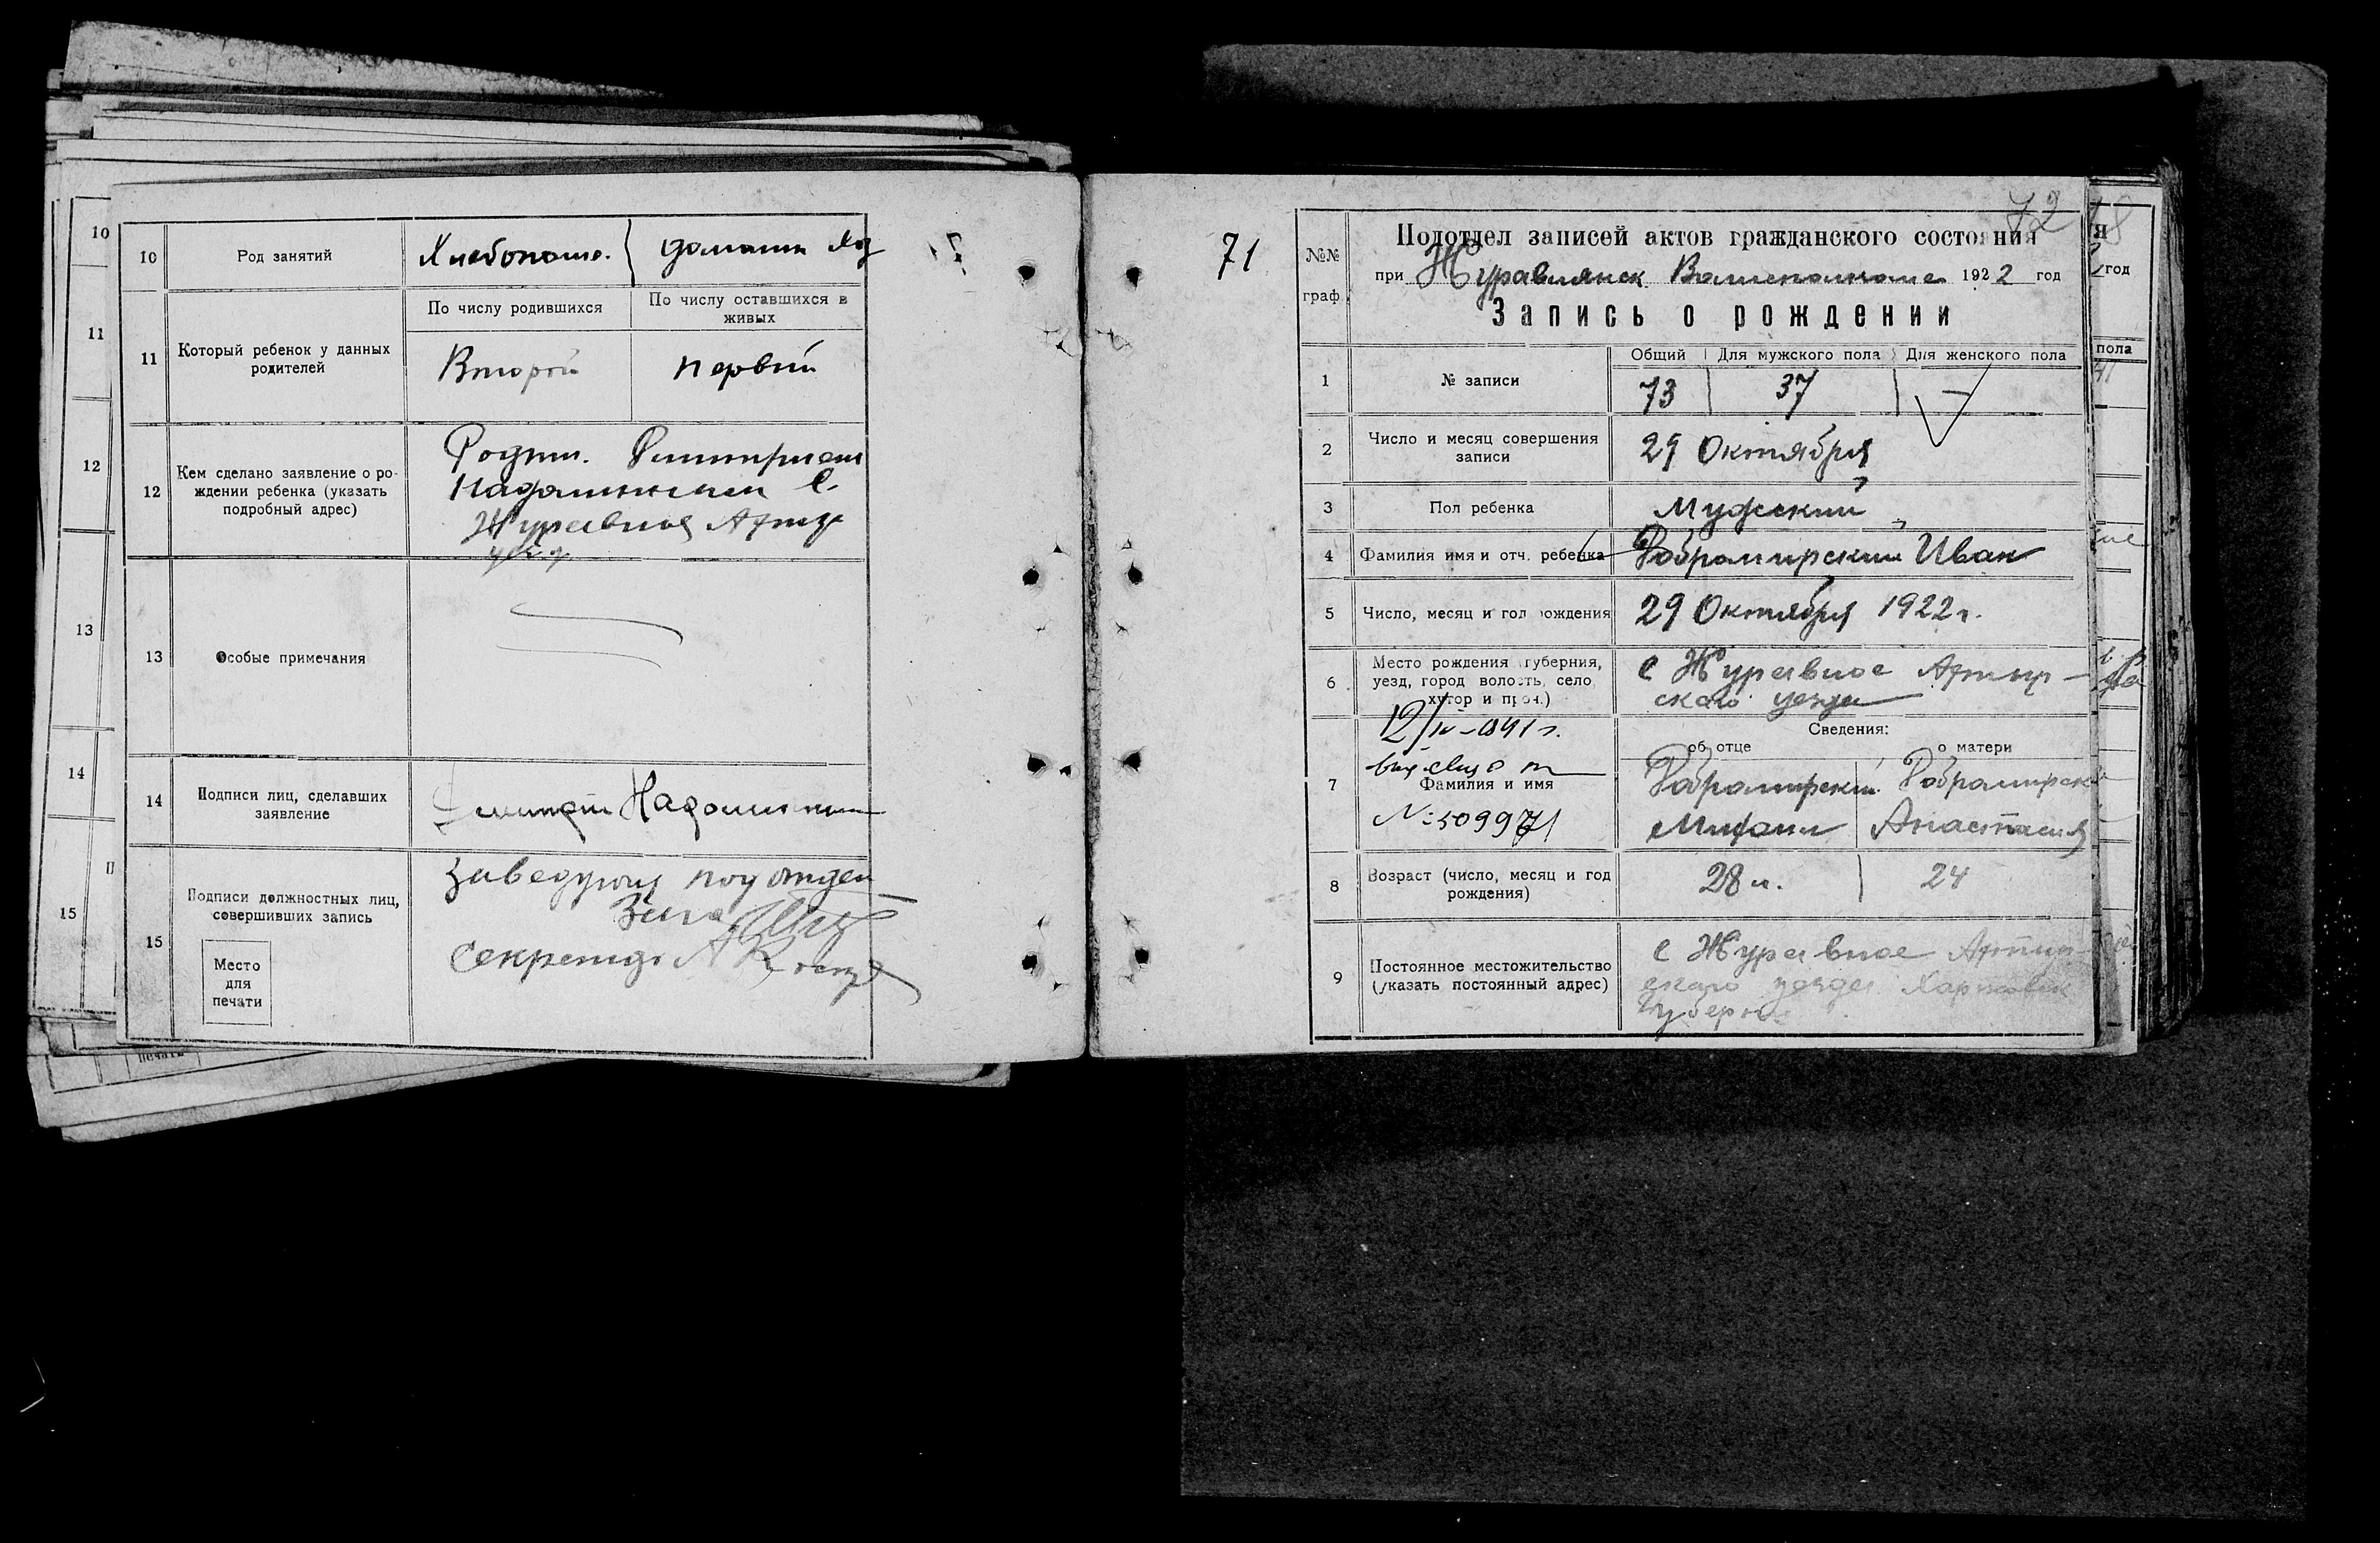 10
11
12
13
14
15
10
Род занятий
Хлебопаше.
домашн хоз
11
Который ребенок у данных
родителей
По числу родившихся
По числу оставшихся в
живых
Второй
первый
12
Кем сделано заявление о ро-
ждении ребенка (указать
подробный адрес)
Надолинским С.
Журавное Ахтыр
уезд
13
Особые примечания
14
Подписи лиц, сделавших
заявление
15
Подписи должностных лиц,
совершивших запись
Место
для
печати
Заведующ подотдел
Загса
Секретарь
печать
71
72
№№
граф.
Подотдел записей актов гражданского состояния
при Журавлянск Волисполкоме 1922 год
Запись о рождении
1
№ записи
Общий
Для мужского пола
Для женского пола
73
37
—
2
Число и месяц совершения
записи
29 Октября
3
Пол ребенка
Мужский
4
Фамилия имя и отч. ребенка
Добромирский Иван
5
Число, месяц и год рождения
29 Октября 1922 г.
6
Место рождения губерния,
уезд, город волость, село
хутор и проч.)
с Журавное Ахтыр-
скаго уезда
12/IV-1941 г.
№ 509971
7
Фамилия и имя
Сведения:
об отце
о матери
Добромирский
Добромирска
Михаил
Анастасия
8
Возраст (число, месяц и год
рождения)
28 л.
24
9
Постоянное местожительство
(указать постоянный адрес)
с Журавное Ахтыр-
скаго уезда Харьковск
Губерн
я
год
пола